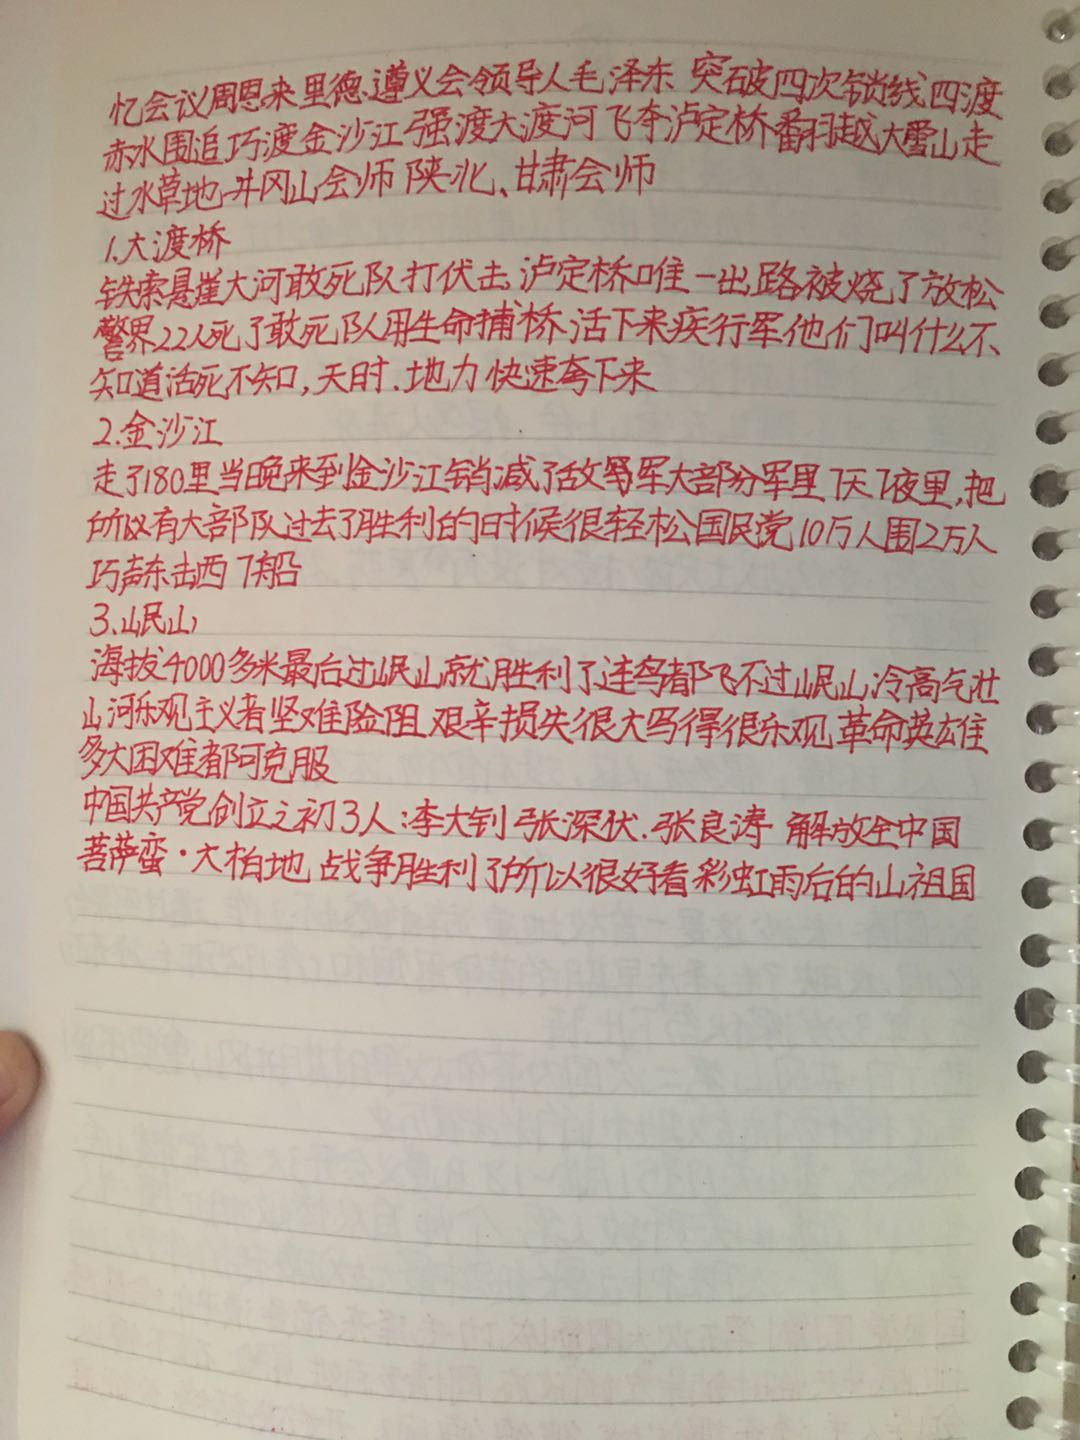 忆会议周恩来里德.遵义会领导人毛泽东 突破四次锁线四渡
赤水围追巧渡金沙江强渡大渡河飞夺泸定桥翻越大雪山走
过水草地井冈山会师陕北、甘肃会师
1.大渡桥
铁索悬崖大河敢死队打伏击,泸定桥唯一出路被烧了放松
警界22人死了敢死队用生命捕桥活下来疾行军他们叫什么不
知道活死不知,天时.地力快速夸下来
2.金沙江
走了180里当晚来到金沙江销减了敌军大部分军里7天7夜里,把
所以有大部队过去了胜利的时候很轻松国民党10万人围2万人
巧声东击西7船
3.岷山
海拔4000多米最后过岷山就胜利了连鸟都飞不过岷山冷高气壮
山河乐观主义者坚难险阻艰辛损失很大写得很乐观革命英雄
多大困难都可克服
中国共产党创立之初3人:李大钊张深伏.张良涛 解放全中国
菩萨蛮·大柏地 战争胜利了所以很好看彩虹雨后的山祖国